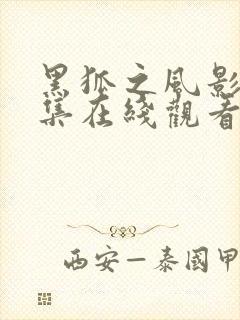 黑狐之風影
集在綫觀看
西安—泰國甲